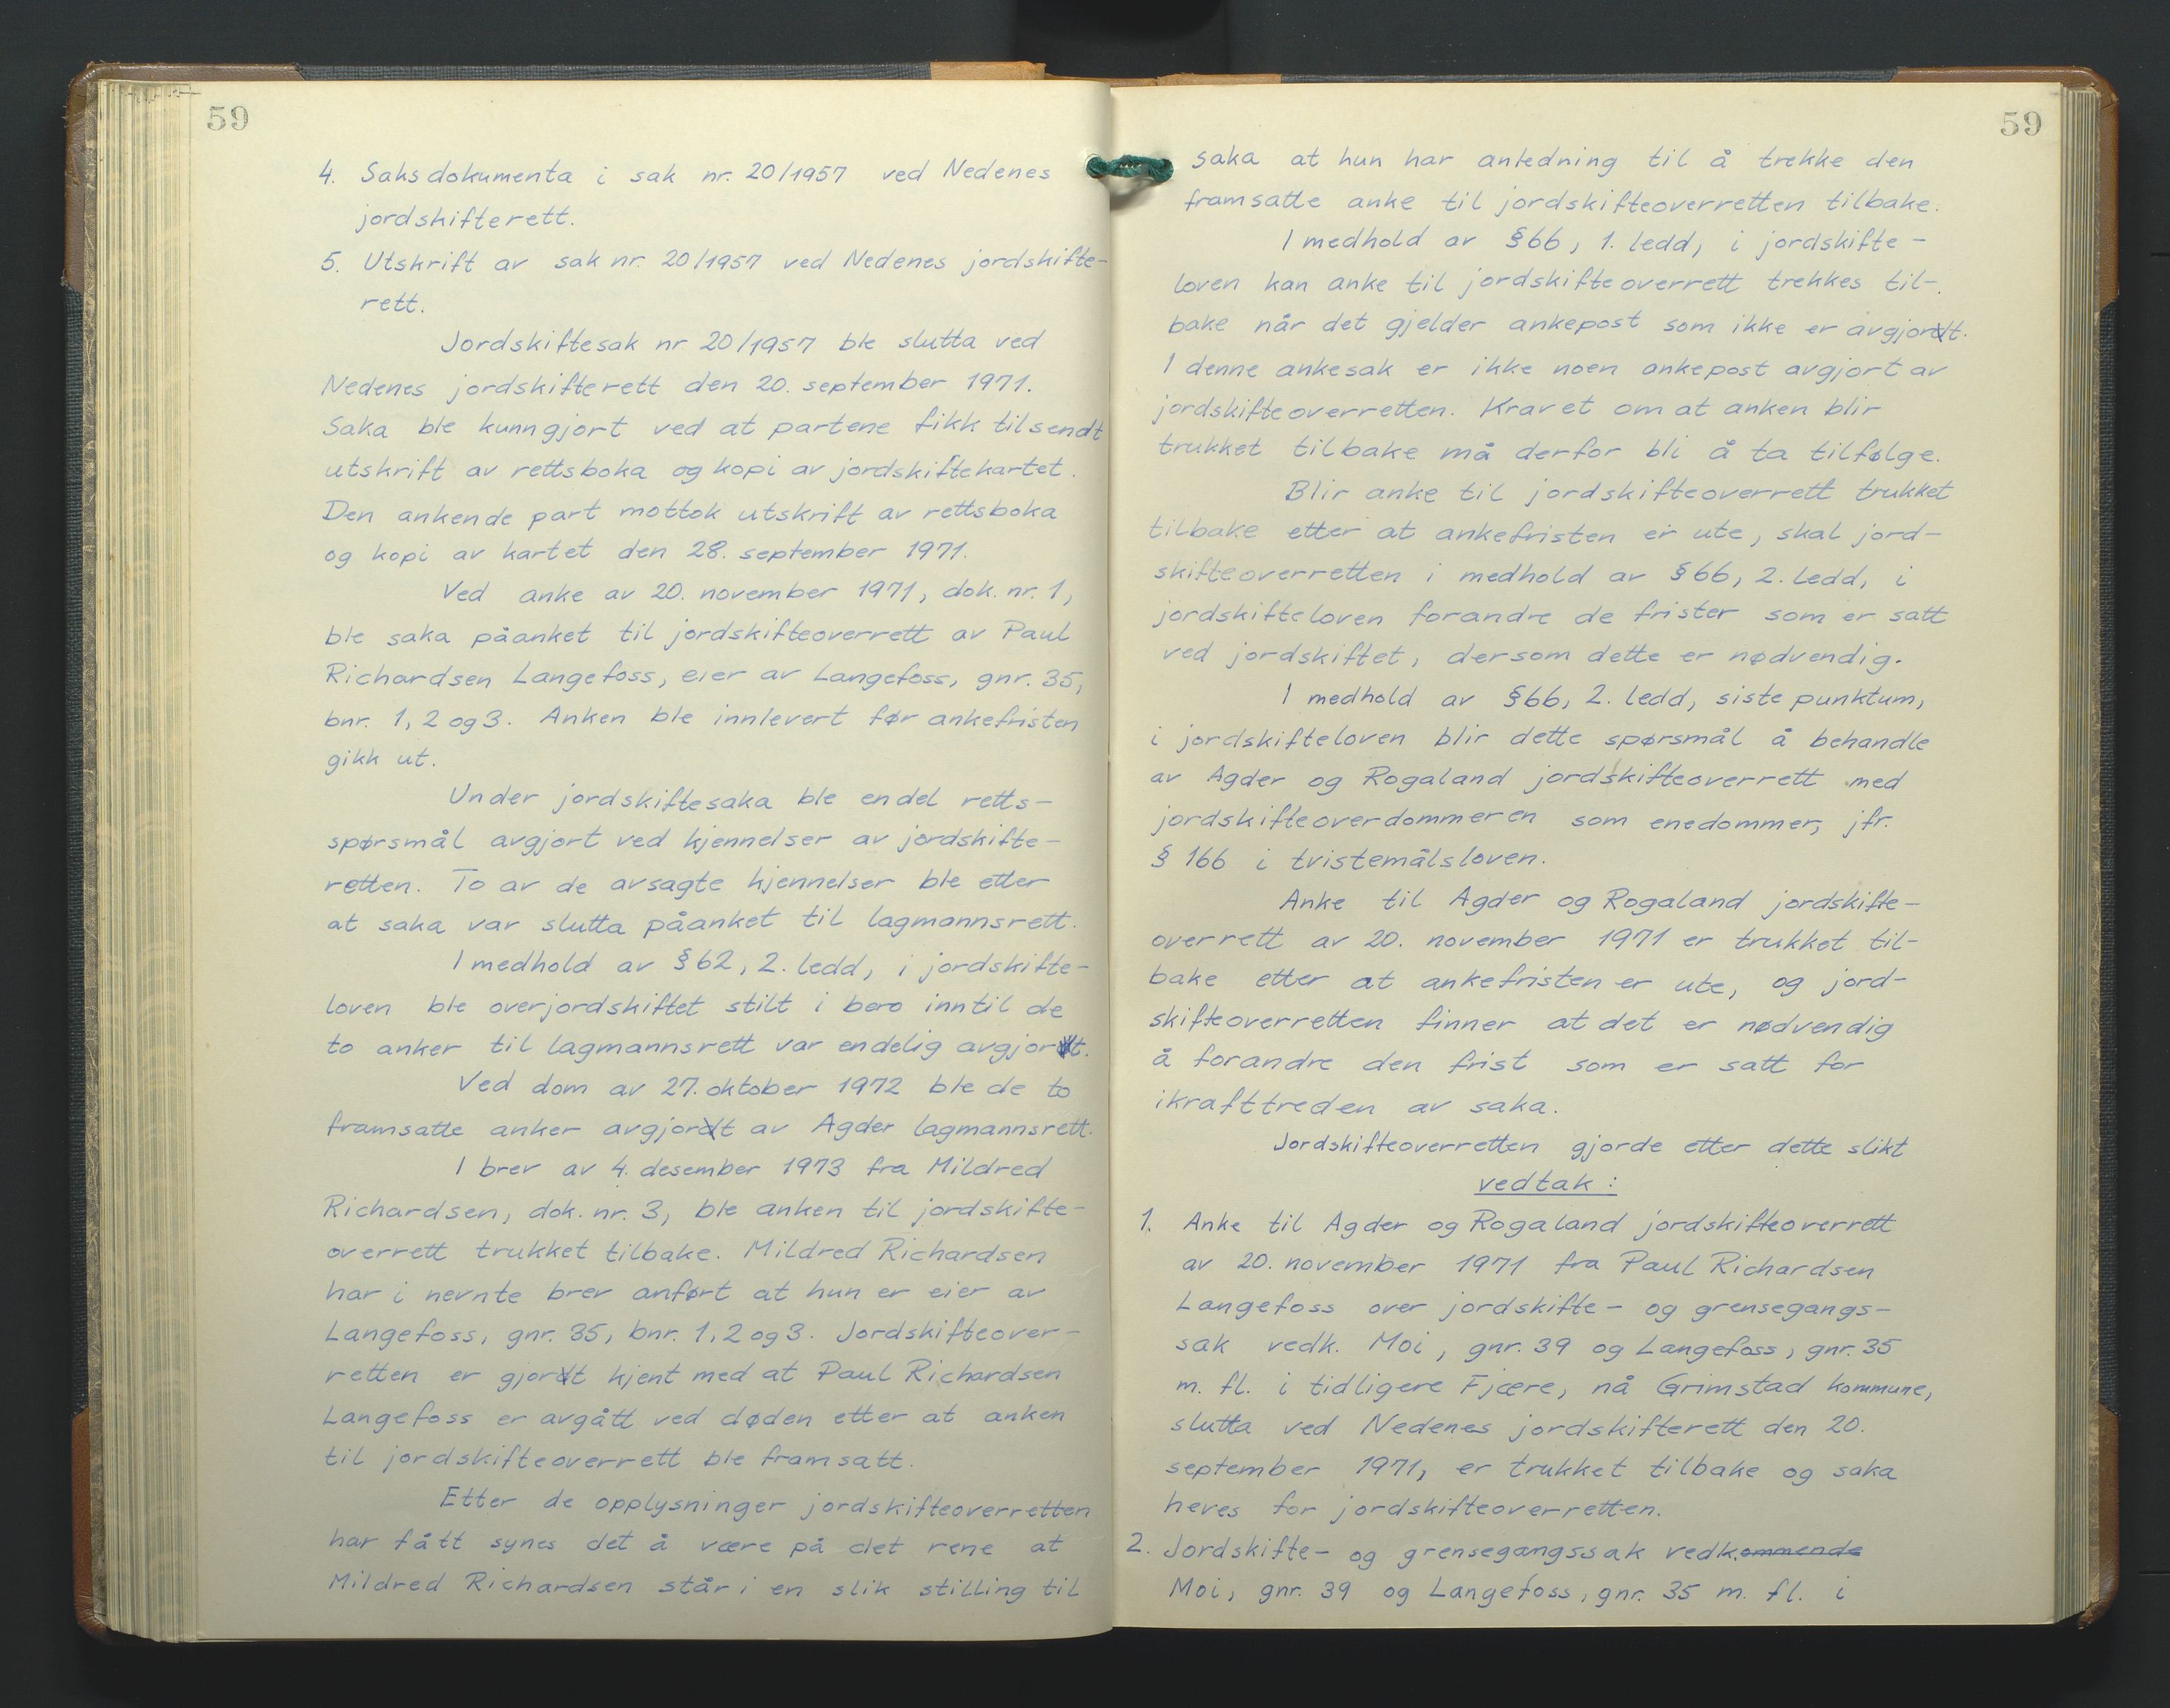 59
4. Saksdokumenta i sak nr. 20/1957 ved Nedenes
jordskifterett.
5. Utskrift av sak nr. 20/1957 ved Nedenes jordskifte-
rett.
Jordskiftesak nr 20/1957 ble slutta ved
Nedenes jordskifterett den 20. september 1971.
Saka ble kunngjort ved at partene fikk tilsendt
utskrift av rettsboka og kopi av jordskiftekartet.
Den ankende part mottok utskrift av rettsboka
og kopi av kartet den 28. september 1971.
Ved anke av 20. november 1971, dok. nr. 1,
ble saka påanket til jordskifteoverrett av Paul
Richardsen Langefoss, eier av Langefoss, gnr. 35,
bnr. 1, 2 og 3. Anken ble innlevert før ankefristen
gikk ut.
Under jordskiftesaka ble endel retts-
spørsmål avgjort ved kjennelser av jordskifte-
retten. To av de avsagte kjennelser ble etter
at saka var slutta påanket til lagmannsrett.
I medhold av § 62, 2. ledd, i jordskifte-
loven ble overjordskiftet stilt i bero inntil de
to anker til lagmannsrett var endelig avgjort.
Ved dom av 27. oktober 1972 ble de to
framsatte anker avgjort av Agder lagmannsrett.
I brev av 4. desember 1973 fra Mildred
Richardsen, dok. nr. 3, ble anken til jordskifte-
overrett trukket tilbake. Mildred Richardsen
har i nevnte brev anført at hun er eier av
Langefoss, gnr. 35, bnr. 1, 2 og 3. Jordskifteover-
retten er gjort kjent med at Paul Richardsen
Langefoss er avgått ved døden etter at anken
til jordskifteoverrett ble framsatt.
Etter de opplysninger jordskifteoverretten
har fått synes det å være på det rene at
Mildred Richardsen står i en slik stilling til
59
saka at hun har anledning til å trekke den
framsatte anke til jordskifteoverretten tilbake.
I medhold av § 66, 1. ledd, i jordskifte-
loven kan anke til jordskifteoverrett trekkes til-
bake når det gjelder ankepost som ikke er avgjort.
I denne ankesak er ikke noen ankepost avgjort av
jordskifteoverretten. Kravet om at anken blir
trukket tilbake må derfor bli å ta tilfølge.
Blir anke til jordskifteoverrett trukket
tilbake etter at ankefristen er ute, skal jord-
skifteoverretten i medhold av § 66, 2. ledd, i
jordskifteloven forandre de frister som er satt
ved jordskiftet, dersom dette er nødvendig.
I medhold av § 66, 2. ledd, siste punktum,
i jordskifteloven blir dette spørsmål å behandle
av Agder og Rogaland jordskifteoverrett med
jordskifteoverdommeren som enedommer, jfr.
§ 166 i tvistemålsloven.
Anke til Agder og Rogaland jordskifte-
overrett av 20. november 1971 er trukket til-
bake etter at ankefristen er ute, og jord-
skifteoverretten finner at det er nødvendig
å forandre den frist som er satt for
ikrafttreden av saka.
Jordskifteoverretten gjorde etter dette slikt
vedtak:
1. Anke til Agder og Rogaland jordskifteoverrett
av 20. november 1971 fra Paul Richardsen
Langefoss over jordskifte- og grensegangs-
sak vedk. Moi, gnr. 39 og Langefoss, gnr. 35
m. fl. i tidligere Fjære, nå Grimstad kommune,
slutta ved Nedenes jordskifterett den 20.
september 1971, er trukket tilbake og saka
heves for jordskifteoverretten.
2. Jordskifte- og grensegangssak vedk.ommende
Moi, gnr. 39 og Langefoss, gnr. 35 m. fl. i